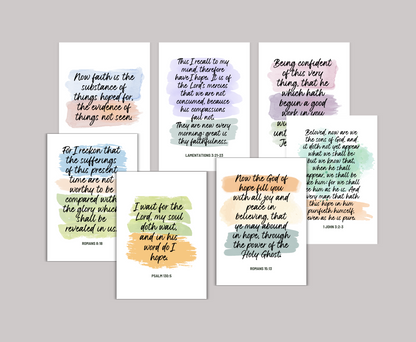 Now faith is the
substance of
things hoped for,
the evidence of
things not seen.
This I recall to my
mind, therefore
have I hope. It is of
the Lord's mercies
that we are not
consumed, because
his compassions
fail not.
They are new every
morning: great is
thy faithfulness.
LAMENTATIONS 3:21-23
Being confident
of this very
thing, that he
which hath
begun a good
work in you
For I reckon that
the sufferings
of this present
time are not
worthy to be
compared with
the glory which
shall be
revealed in us.
ROMANS 8:18
I wait for the
Lord, my soul
doth wait,
and in his
word do I
hope.
PSALM 130:5
Now the God of
hope fill you
with all joy and
peace in
believing, that
ye may abound
in hope, through
the power of the
Holy Ghost.
ROMANS 15:13
Beloved, now are we
the sons of God, and
it doth not yet appear
what we shall be:
but we know that,
when he shall
appear, we shall be
like him; for we shall
see him as he is. And
every man that hath
this hope in him
purifieth himself,
even as he is pure.
1 JOHN 3:2-3